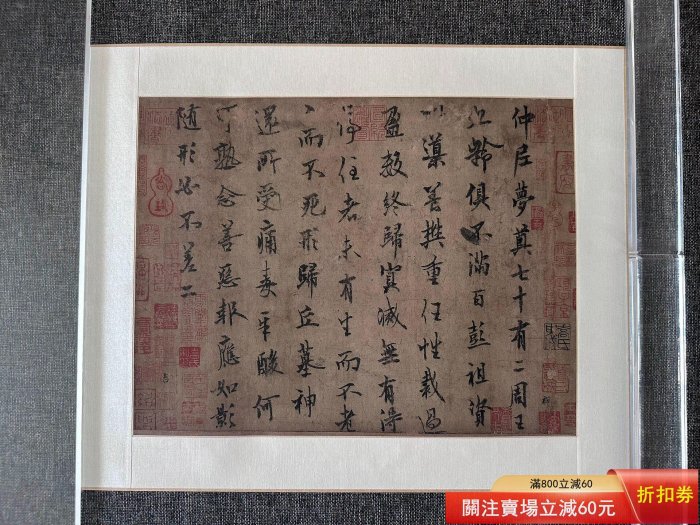 仲尼夢奠七十有二周王
九齡俱不滿百彭祖資
以導養樊重任性裁過
盈數終歸冥滅無有得
停住者未有生而不老
老而不死形歸丘墓神
還所受痛毒辛酸何
可熟念善惡報應如影
随形必不差二
滿800立減60
關注賣場立減60元
折扣券